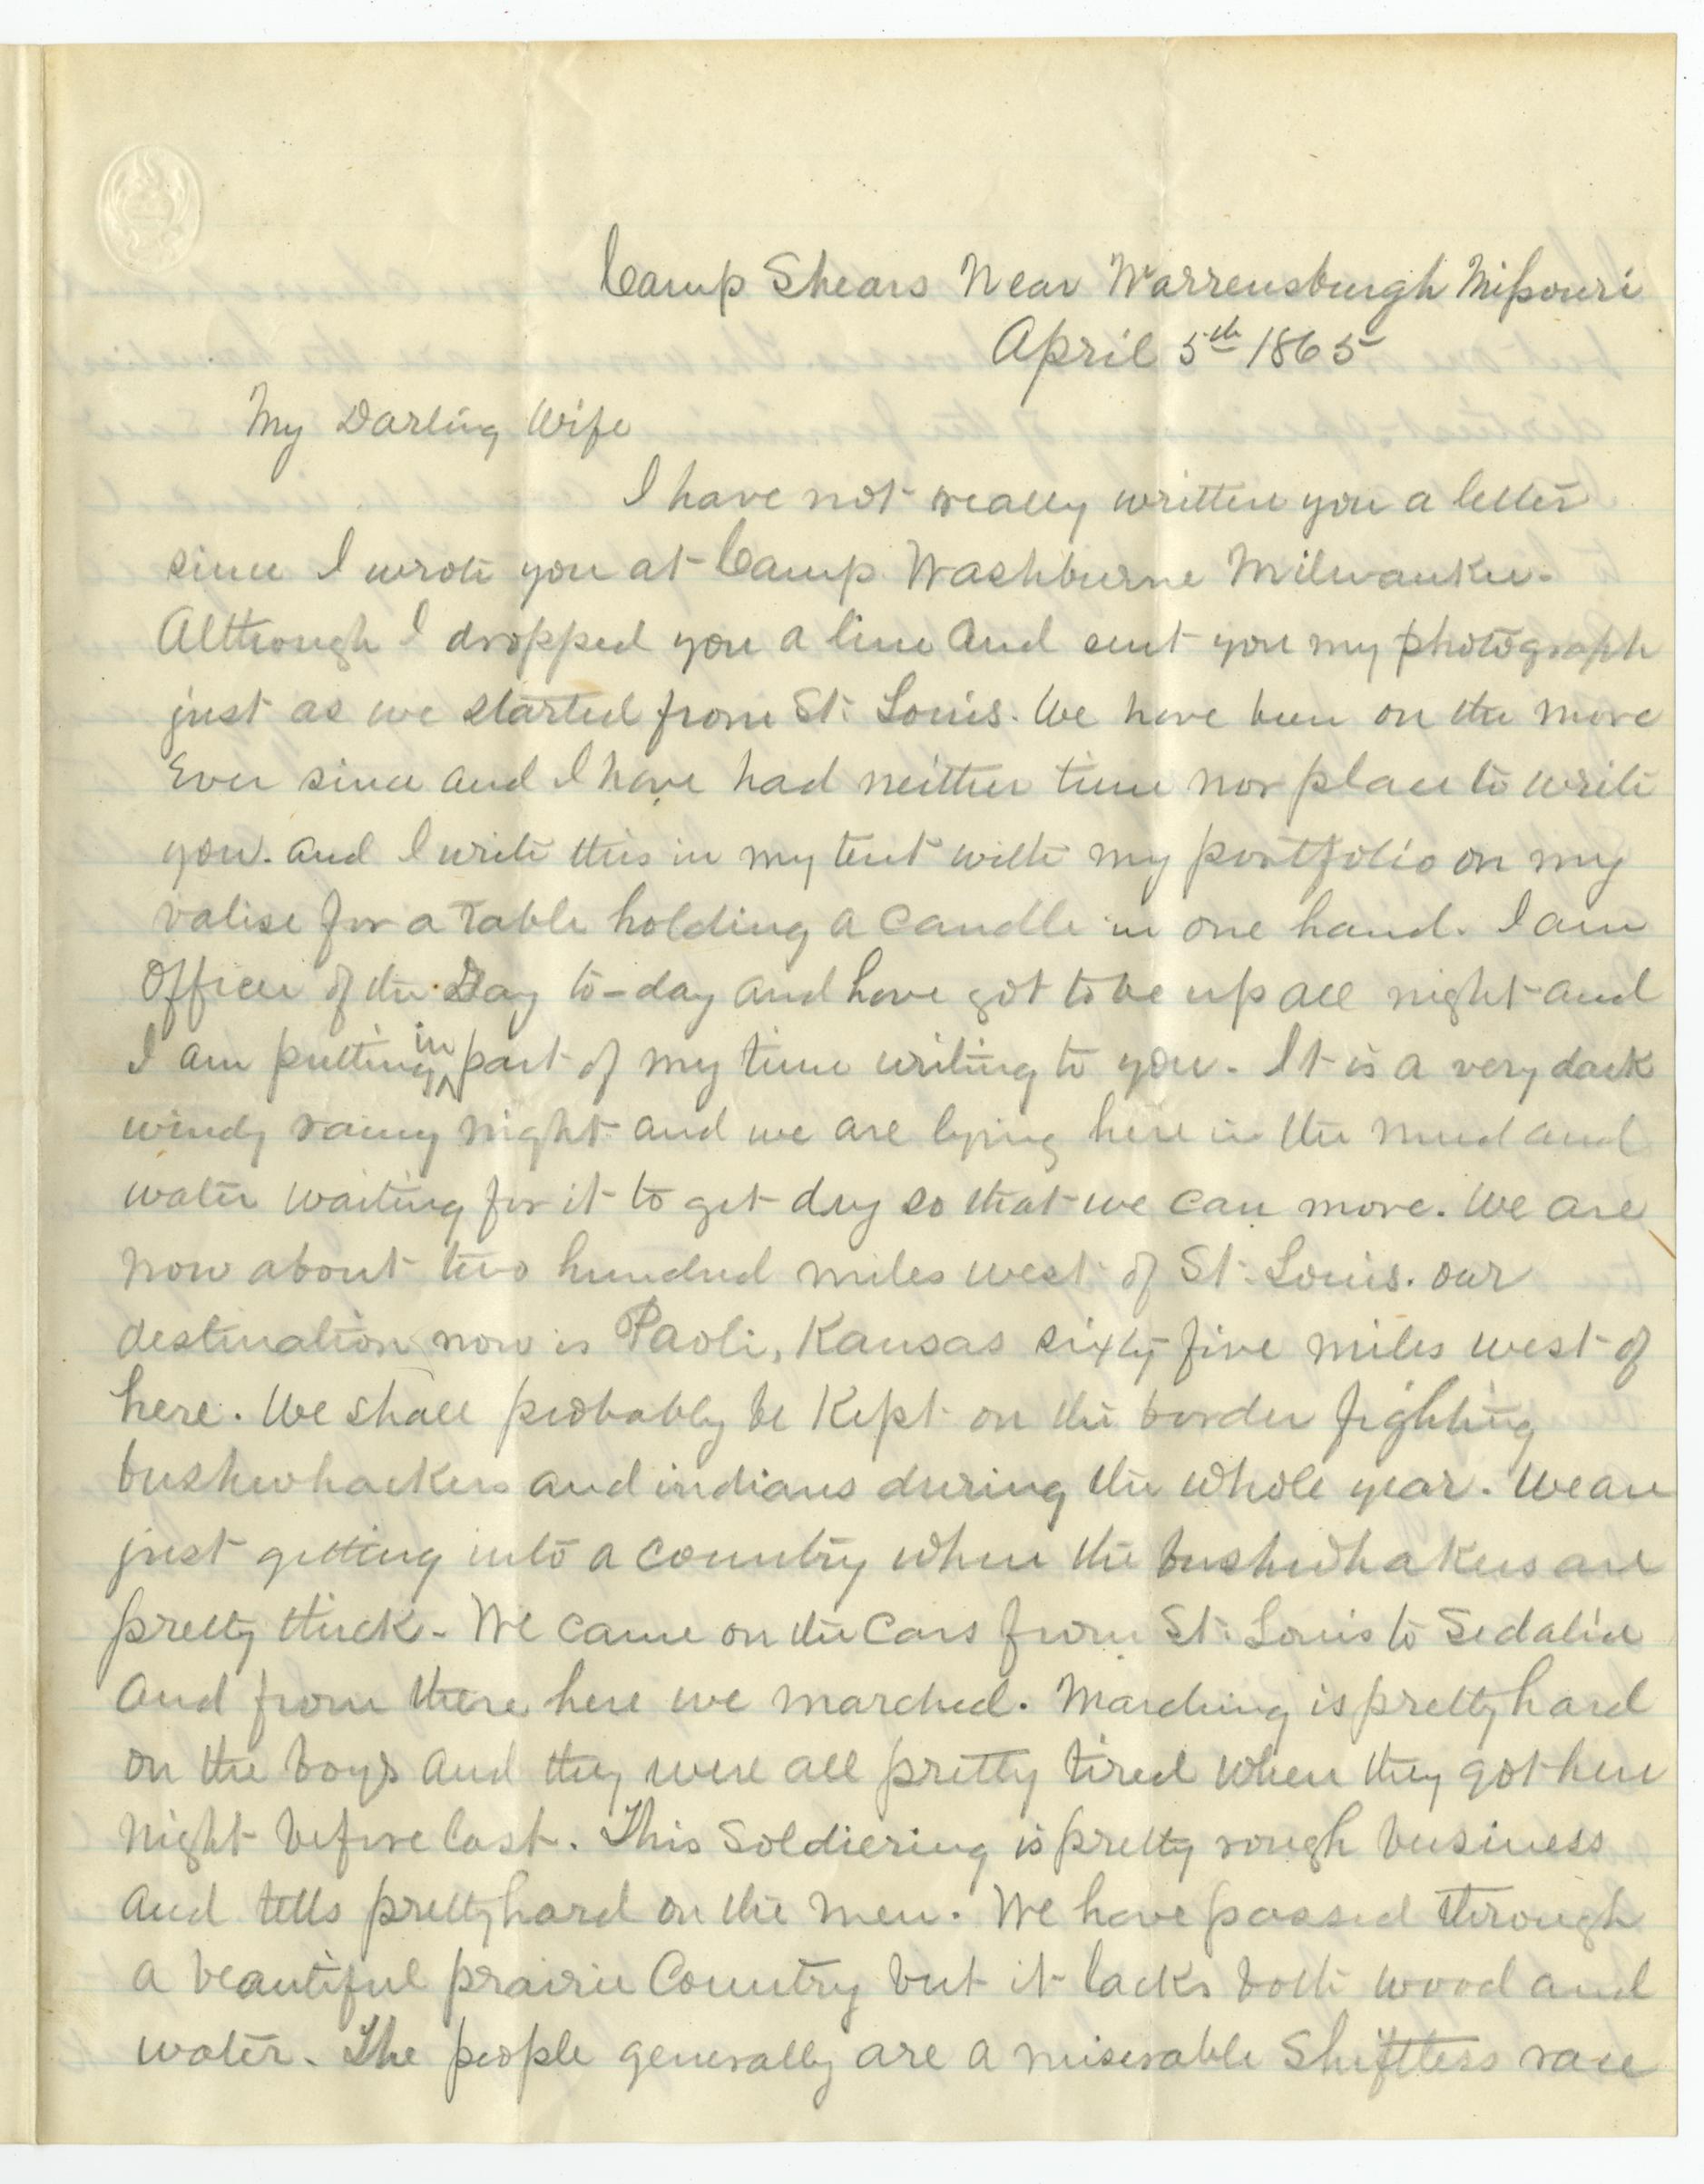 Camp Shears Near Warrensburgh Missouri
April 5th 1865
My Darling Wife
I have not really written you a letter
since I wrote you at Camp Washburne Milwaukee.
Although I dropped you a line and sent you my photograph
just as we started from St. Louis. We have been on the move
Ever since and I have had neither time nor place to write
you. and I write this in my tent with my portfolio on my
valise for a table holding a candle in one hand. I am
Officer of the Day to-day and have got to be up all night and
I am putting in part of my time writing to you. It is a very dark
windy rainy night and we are lying here in the mud and
water waiting for it to get dry so that we can move. We are
now about two hundred miles west of St. Louis. our
destination now is Paoli, Kansas sixty-five miles west of
here. We shall probably be Kept on the border fighting
bushwhackers and indians during the whole year. We are
just getting into a country where the bushwhakers are
pretty thick. We came on the Cars from St. Louis to Sedalia
And from there here we marched. Marching is pretty hard
on the boys and they were all pretty tired when they got here
night before last. This Soldiering is pretty rough business
and tells pretty hard on the men. We have passed through
a beautiful prairie Country but it lacks both wood and
water. The people generally are a miserable Shiftless race